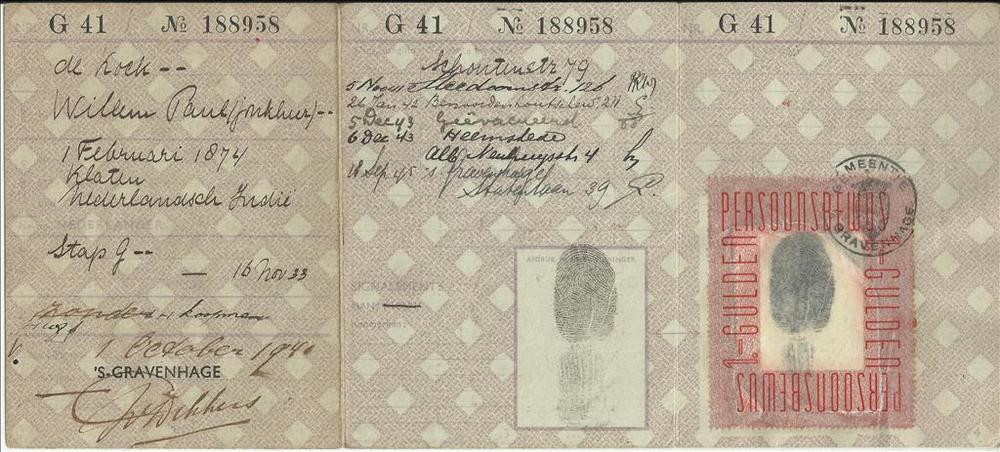 G 41 № 188958
de Kock --
Willem Paul (jonkheer) --
1 Februari 1874
Klaten
Nederlandsch Indië
Stap G --
— 16 Nov 33
koopman
1 October 194
'S-GRAVENHAGE
G 41 № 188958
Schoutenstr 79
5 Nov Meedoornstr. 126
26 Jan 42 Benoordenhoutschew. 211
5 Dec 43 Geëvacueerd
6 Dec 43 Heemstede
Alb. 4
18 Sep 45 's Gravenhage
Statenlaan 39
SIGNALEMENT
G 41 № 188958
GEMEENTE
'S GRAVENHAGE
PERSOONSBEWIJS
1.-GULDEN
1.-GULDEN
PERSOONSBEWIJS